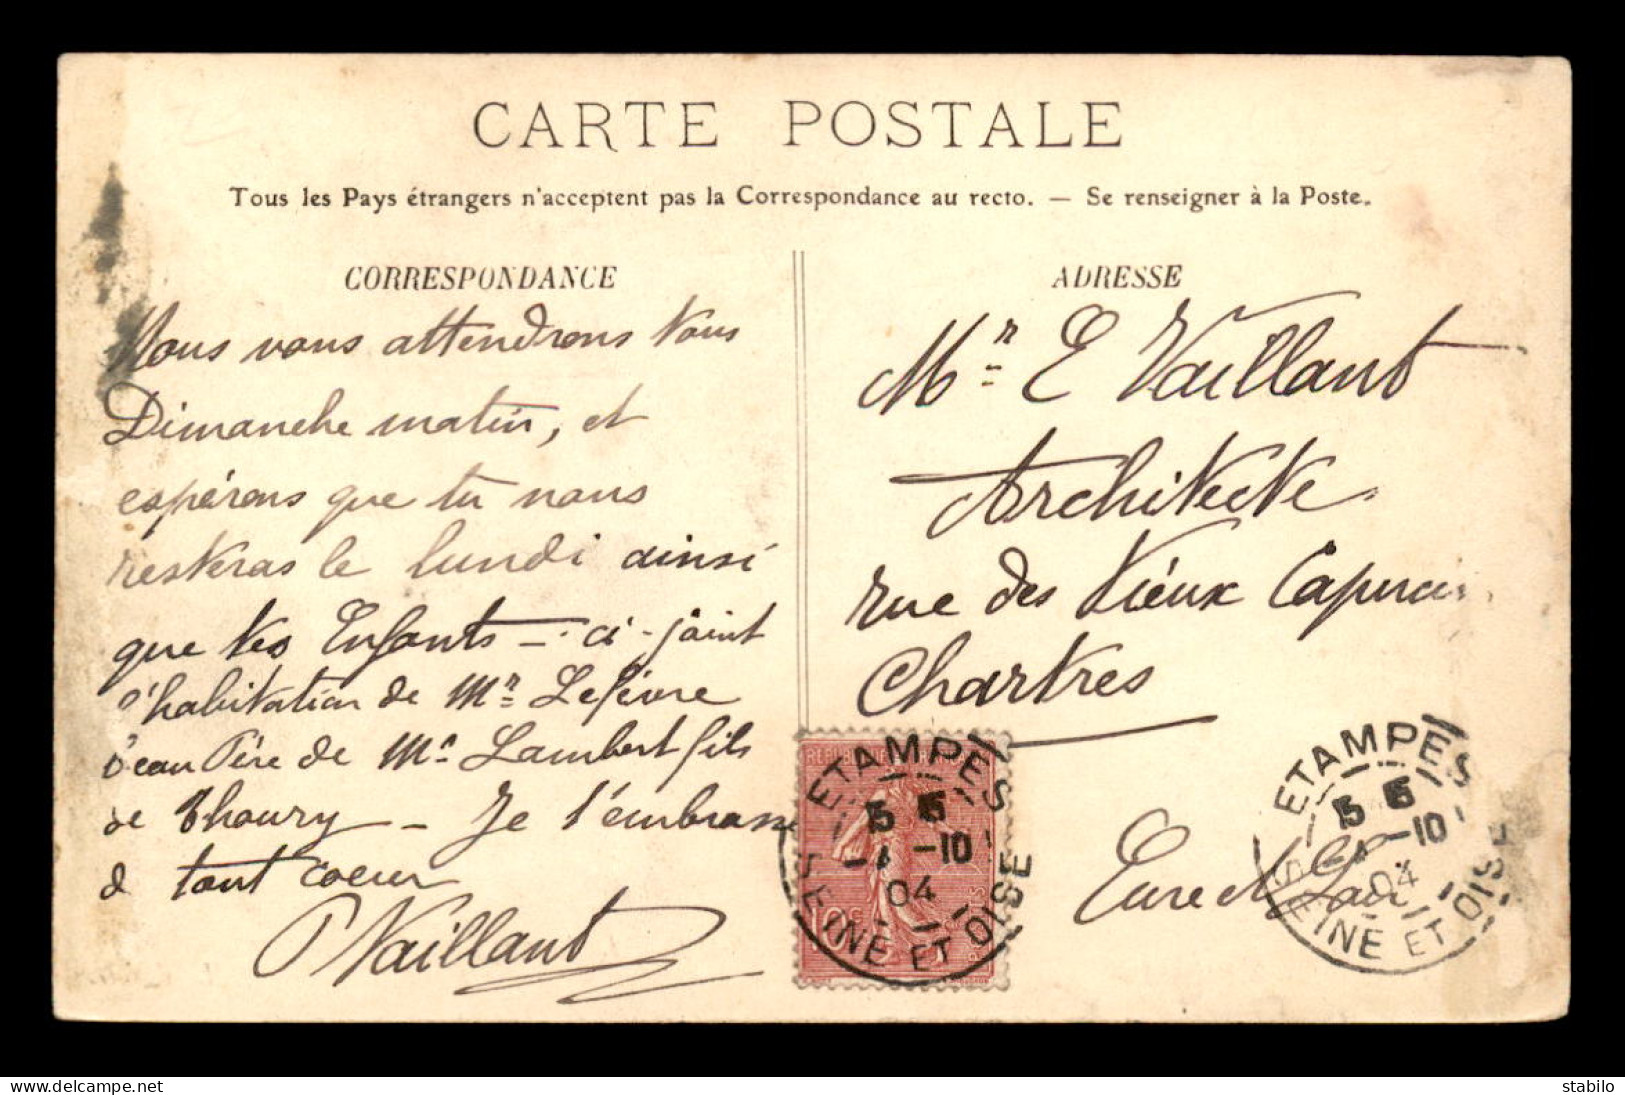 CARTE POSTALE
Tous les Pays étrangers n'acceptent pas la Correspondance au recto. — Se renseigner à la Poste.
CORRESPONDANCE
Nous vous attendrons tous
Dimanche matin, et
espérons que tu nous
resteras le lundi ainsi
que tes Enfants — ci-joint
l'habitation de Mr Lefèvre
beau Père de Mr Lambert fils
de Thoury — Je t'embrasse
d tout coeur
P Vaillant
ADRESSE
Mr E Vaillant
Architecte
rue des Vieux Capucins
Chartres
Eure et Loir
ETAMPES
15 15
4 -10
04
SEINE ET OISE
10c
ETAMPES
15 15
4 -10
04
SEINE ET OISE
delcampe.net
stabilo